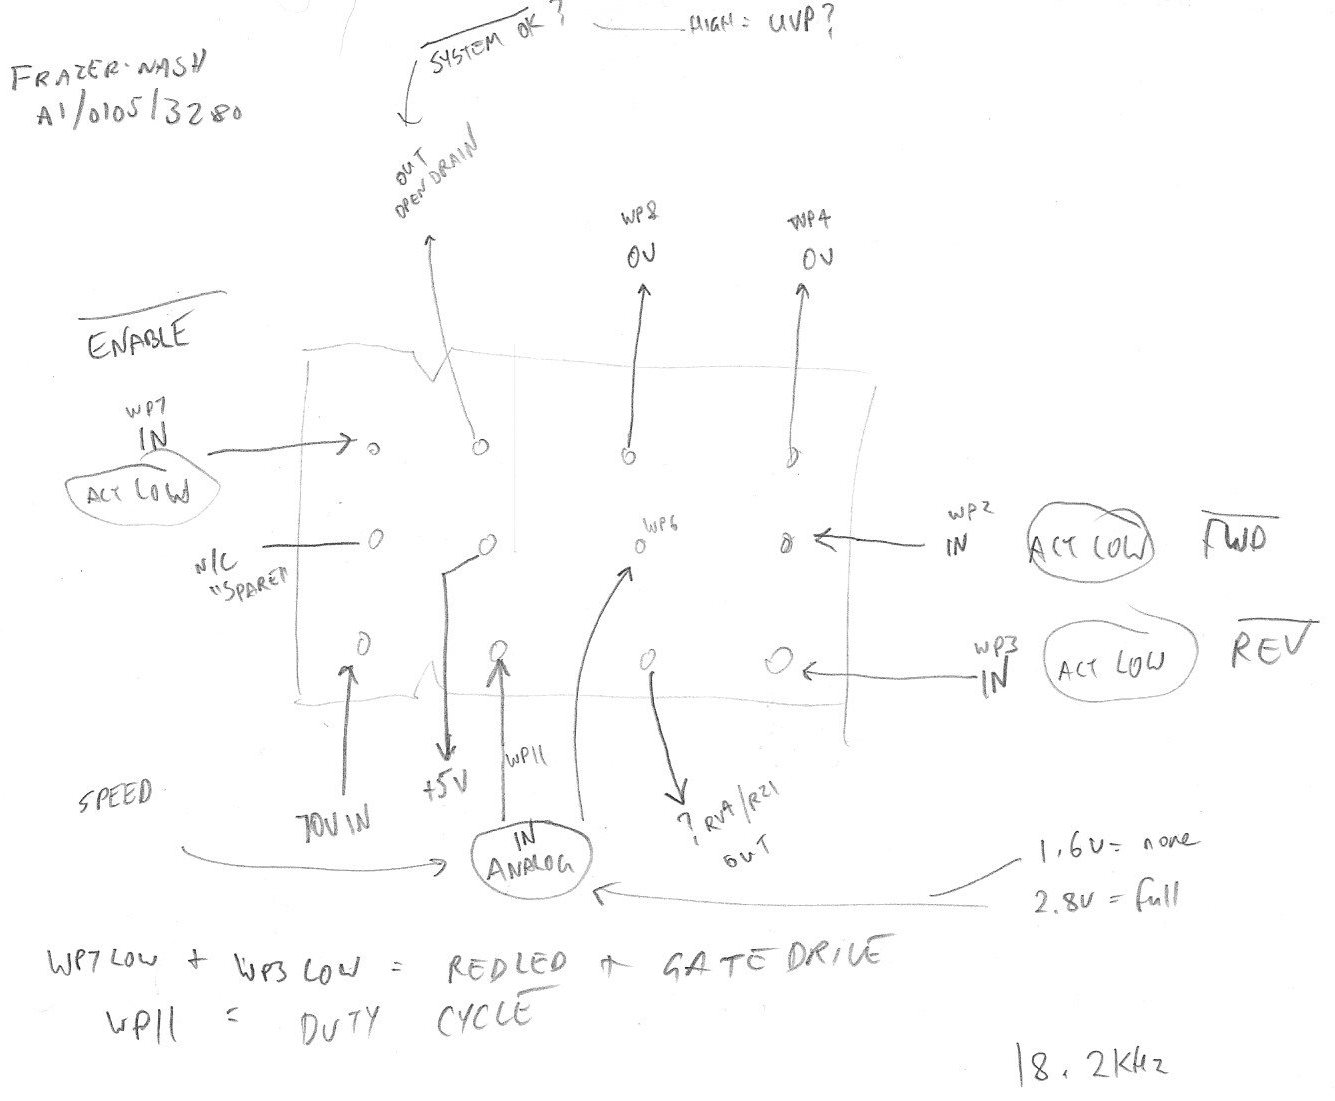 SYSTEM OK?
HIGH = UVP?
FRAZER-NASH
A1/0105/3280
OUT
OPEN DRAIN
WP8
0V
WP4
0V
ENABLE
WP7
IN
ACT LOW
N/C
"SPARE"
WP6
WP2
IN
ACT LOW
FWD
WP3
IN
ACT LOW
REV
SPEED
70V IN
+5V
WP11
IN
ANALOG
? RVA/RZ1
OUT
1.6V = none
2.8V = full
WP7 LOW + WP3 LOW = RED LED + GATE DRIVE
WP11 = DUTY CYCLE
18.2KHz